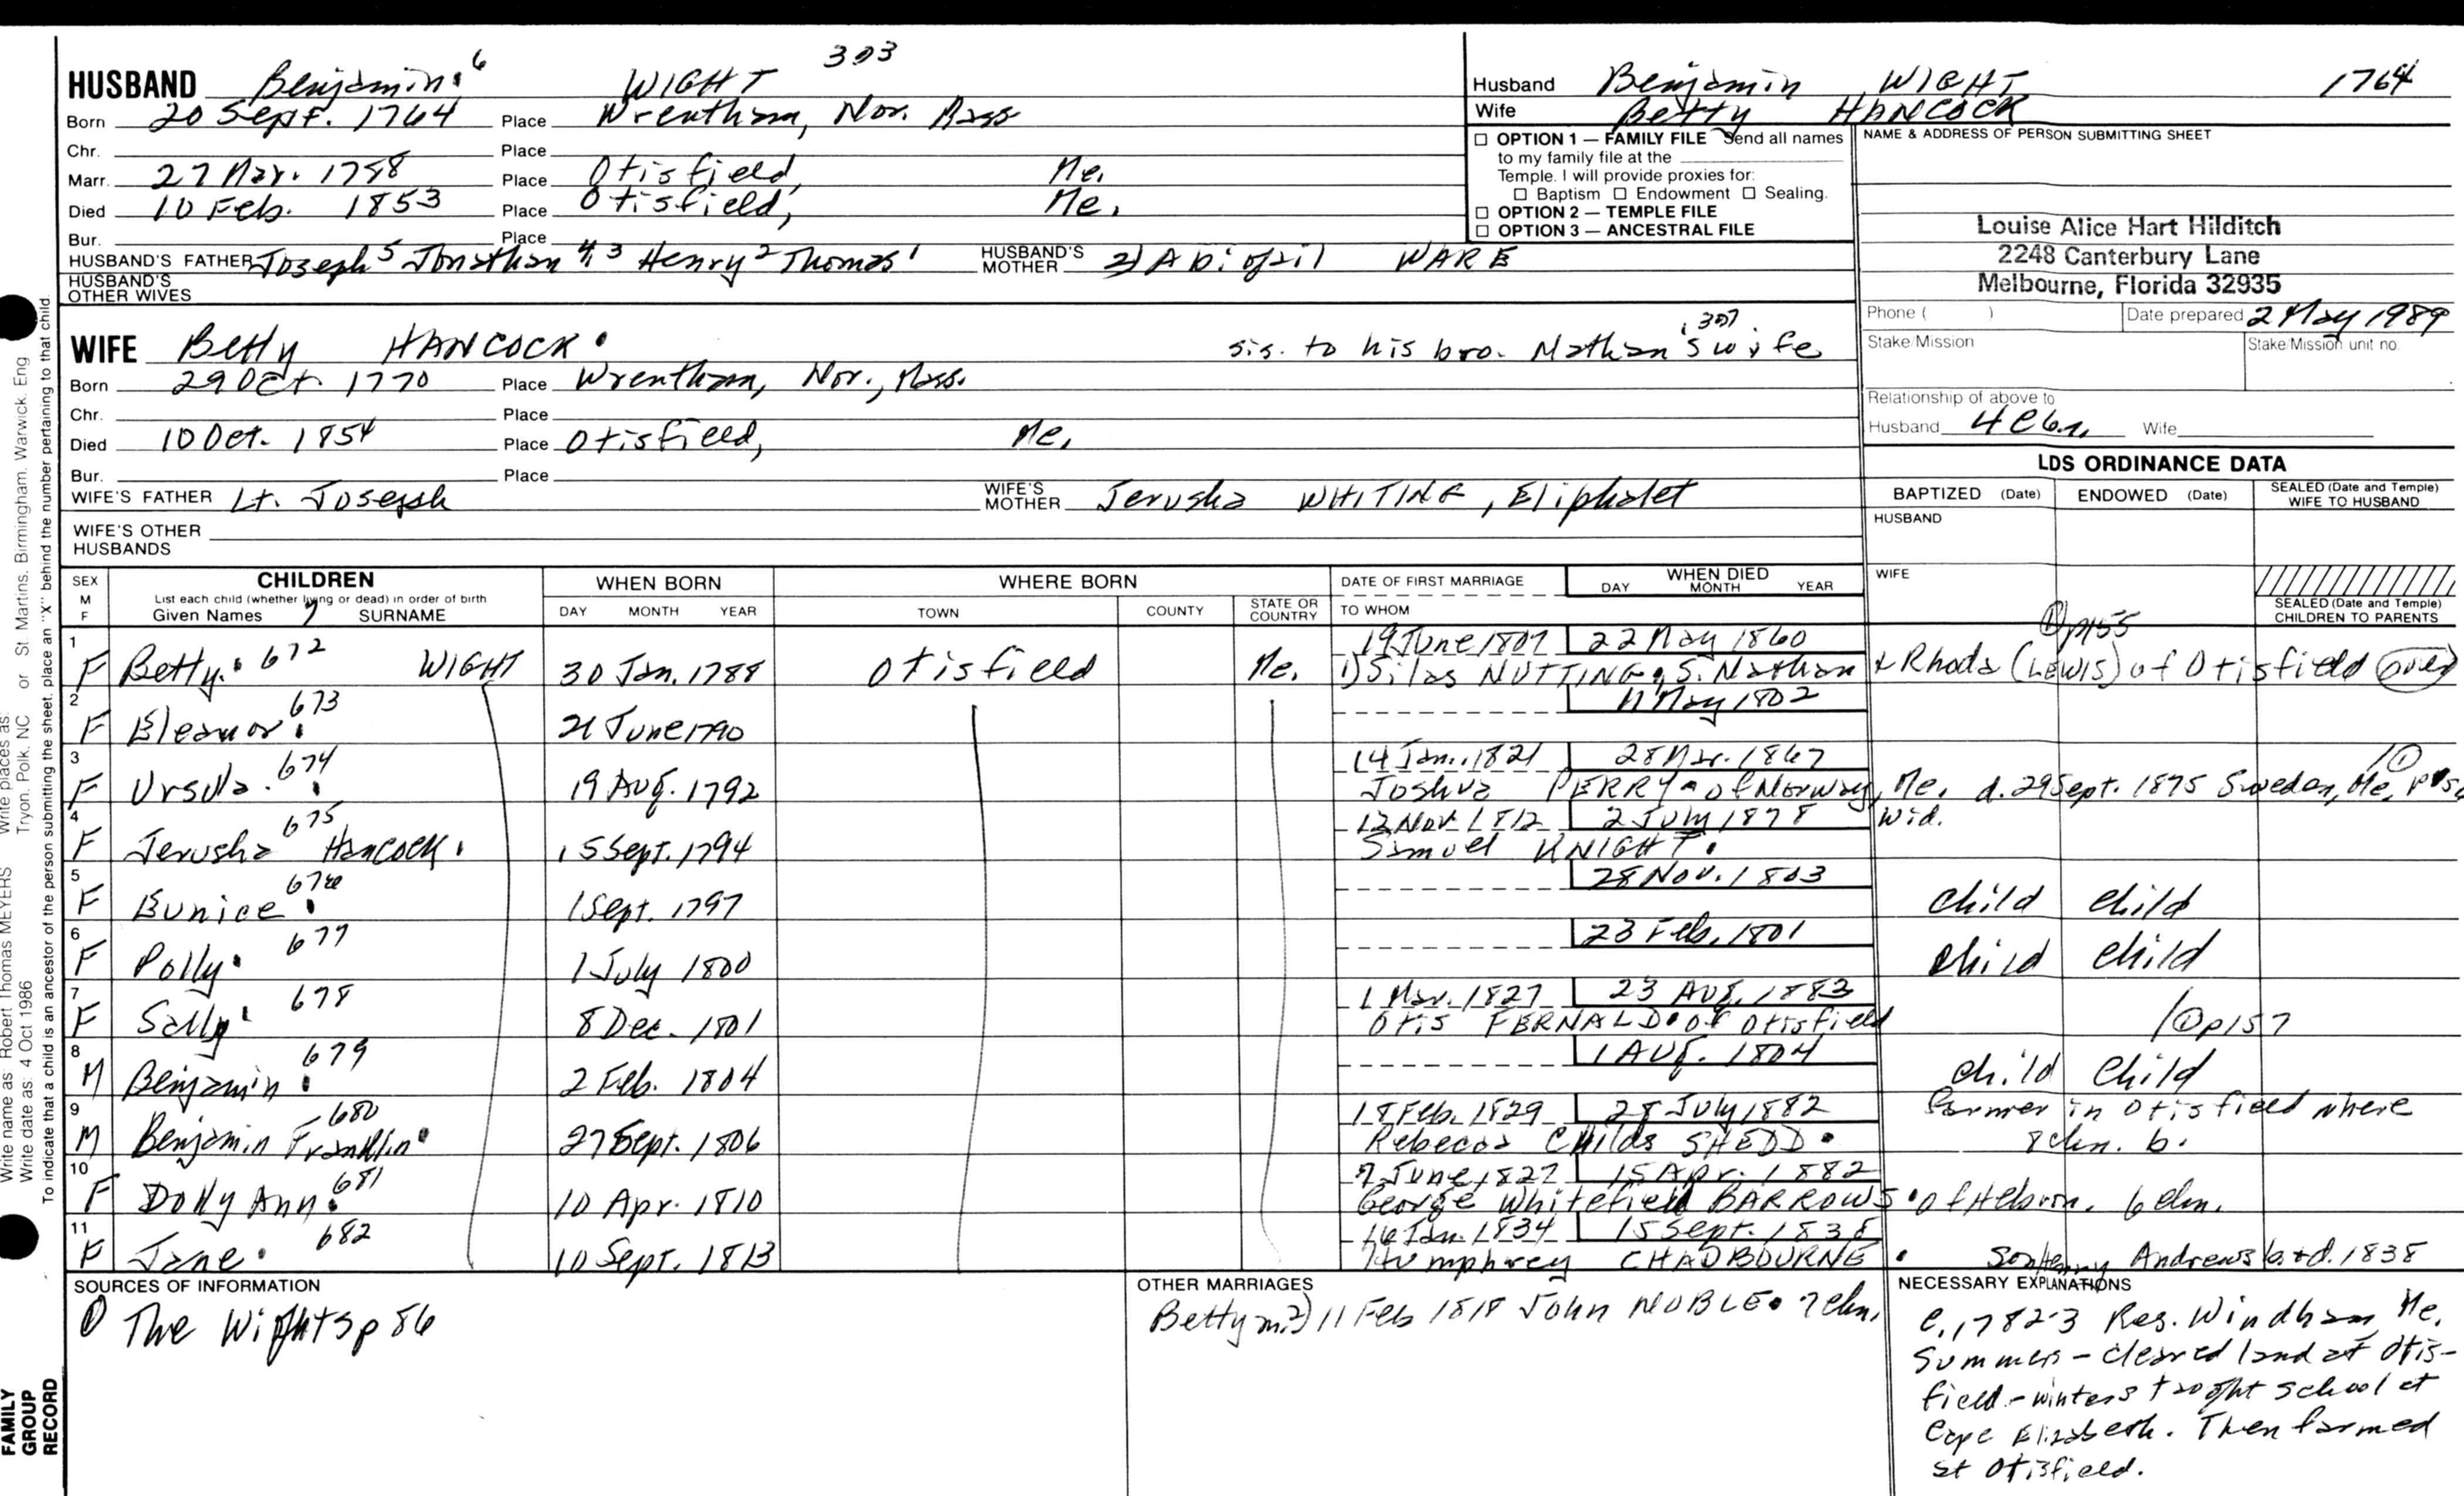 303
HUSBAND Benjamin. 6 WIGHT
Born 20 Sept. 1764 Place Wrentham, Nor. Mass
Chr. Place
Marr. 27 Mar. 1788 Place Otisfield, Me.
Died 10 Feb. 1853 Place Otisfield, Me.
Bur. Place
HUSBAND'S FATHER Joseph 5 Jonathan 4,3 Henry 2 Thomas 1 HUSBAND'S MOTHER 2) Abigail WARE
HUSBAND'S OTHER WIVES
Husband Benjamin WIGHT 1764
Wife Betty HANCOCK
☐ OPTION 1 — FAMILY FILE Send all names
to my family file at the
Temple. I will provide proxies for:
☐ Baptism ☐ Endowment ☐ Sealing.
☐ OPTION 2 — TEMPLE FILE
☐ OPTION 3 — ANCESTRAL FILE
NAME & ADDRESS OF PERSON SUBMITTING SHEET
Louise Alice Hart Hilditch
2248 Canterbury Lane
Melbourne, Florida 32935
Phone ( ) Date prepared 2 May 1989
Stake/Mission Stake/Mission unit no.
Relationship of above to
Husband 4C6r. Wife
WIFE Betty HANCOCK. sis. to his bro. Nathan's 307 wife
Born 29 Oct. 1770 Place Wrentham, Nor., Mass.
Chr. Place
Died 10 Oct. 1854 Place Otisfield, Me.
Bur. Place
WIFE'S FATHER Lt. Joseph WIFE'S MOTHER Jerusha WHITING, Eliphalet
WIFE'S OTHER HUSBANDS
LDS ORDINANCE DATA
BAPTIZED (Date) ENDOWED (Date) SEALED (Date and Temple) WIFE TO HUSBAND
HUSBAND
WIFE
SEALED (Date and Temple) CHILDREN TO PARENTS
SEX M F
CHILDREN
List each child (whether living or dead) in order of birth
Given Names 7 SURNAME
WHEN BORN
DAY MONTH YEAR
WHERE BORN
TOWN COUNTY STATE OR COUNTRY
DATE OF FIRST MARRIAGE
TO WHOM
WHEN DIED
DAY MONTH YEAR
① p155
19 June 1807 22 May 1860
1 F Betty. 672 WIGHT 30 Jan. 1788 Otisfield Me. 1) Silas NUTTING, S. Nathan & Rhoda (LEWIS) of Otisfield over
11 May 1802
2 F Eleanor. 673 21 June 1790
14 Jan. 1821 28 Mar. 1867 ①
3 F Ursula. 674 19 Aug. 1792 Joshua PERRY of Norway, Me. d. 29 Sept. 1875 Sweden, Me.
12 Nov 1812 2 July 1878 Wid.
4 F Jerusha Hancock. 675 15 Sept. 1794 Samuel KNIGHT.
28 Nov. 1803
5 F Eunice. 676 1 Sept. 1797 child child
23 Feb. 1801
6 F Polly. 677 1 July 1800 child child
1 Mar. 1827 23 Aug. 1883
7 F Sally. 678 8 Dec. 1801 Otis FERNALD. of Otisfield ① p157
1 Aug. 1804
8 M Benjamin. 679 2 Feb. 1804 child child
18 Feb. 1829 28 July 1882 Farmer in Otisfield where
9 M Benjamin Franklin. 680 27 Sept. 1806 Rebecca Childs SHEDD. 8 chn. b.
7 June 1827 15 Apr. 1882
10 F Dolly Ann. 681 10 Apr. 1810 George Whitefield BARROWS. of Hebron. 6 chn.
16 Jan. 1834 15 Sept. 1838
11 F Jane. 682 10 Sept. 1813 Humphrey CHADBOURNE. Son Henry Andrews b. & d. 1838
SOURCES OF INFORMATION
① The Wights p 86
OTHER MARRIAGES
Betty m. 2) 11 Feb 1818 John NOBLE. 7 chn.
NECESSARY EXPLANATIONS
c. 1782-3 Res. Windham, Me.
Summers - cleared land at Otis-
field - winters taught school at
Cape Elizabeth. Then farmed
at Otisfield.
Write name as: Robert Thomas MEYERS
Write date as: 4 Oct 1986
Write places as: Tryon, Polk, NC or St. Martins, Birmingham, Warwick, Eng
To indicate that a child is an ancestor of the person submitting the sheet, place an "X" behind the number pertaining to that child.
FAMILY
GROUP
RECORD